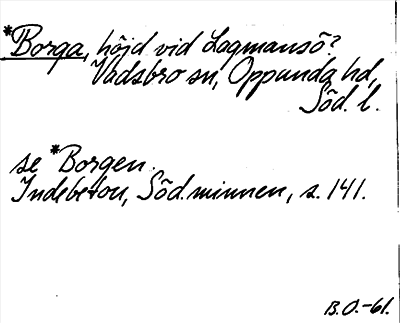 *Borga, höjd vid Lagmansö?
Vadsbro sn, Oppunda hd,
Söd. l.
se *Borgen.
Indebetou, Söd. minnen, s. 141.
B.O.-61.